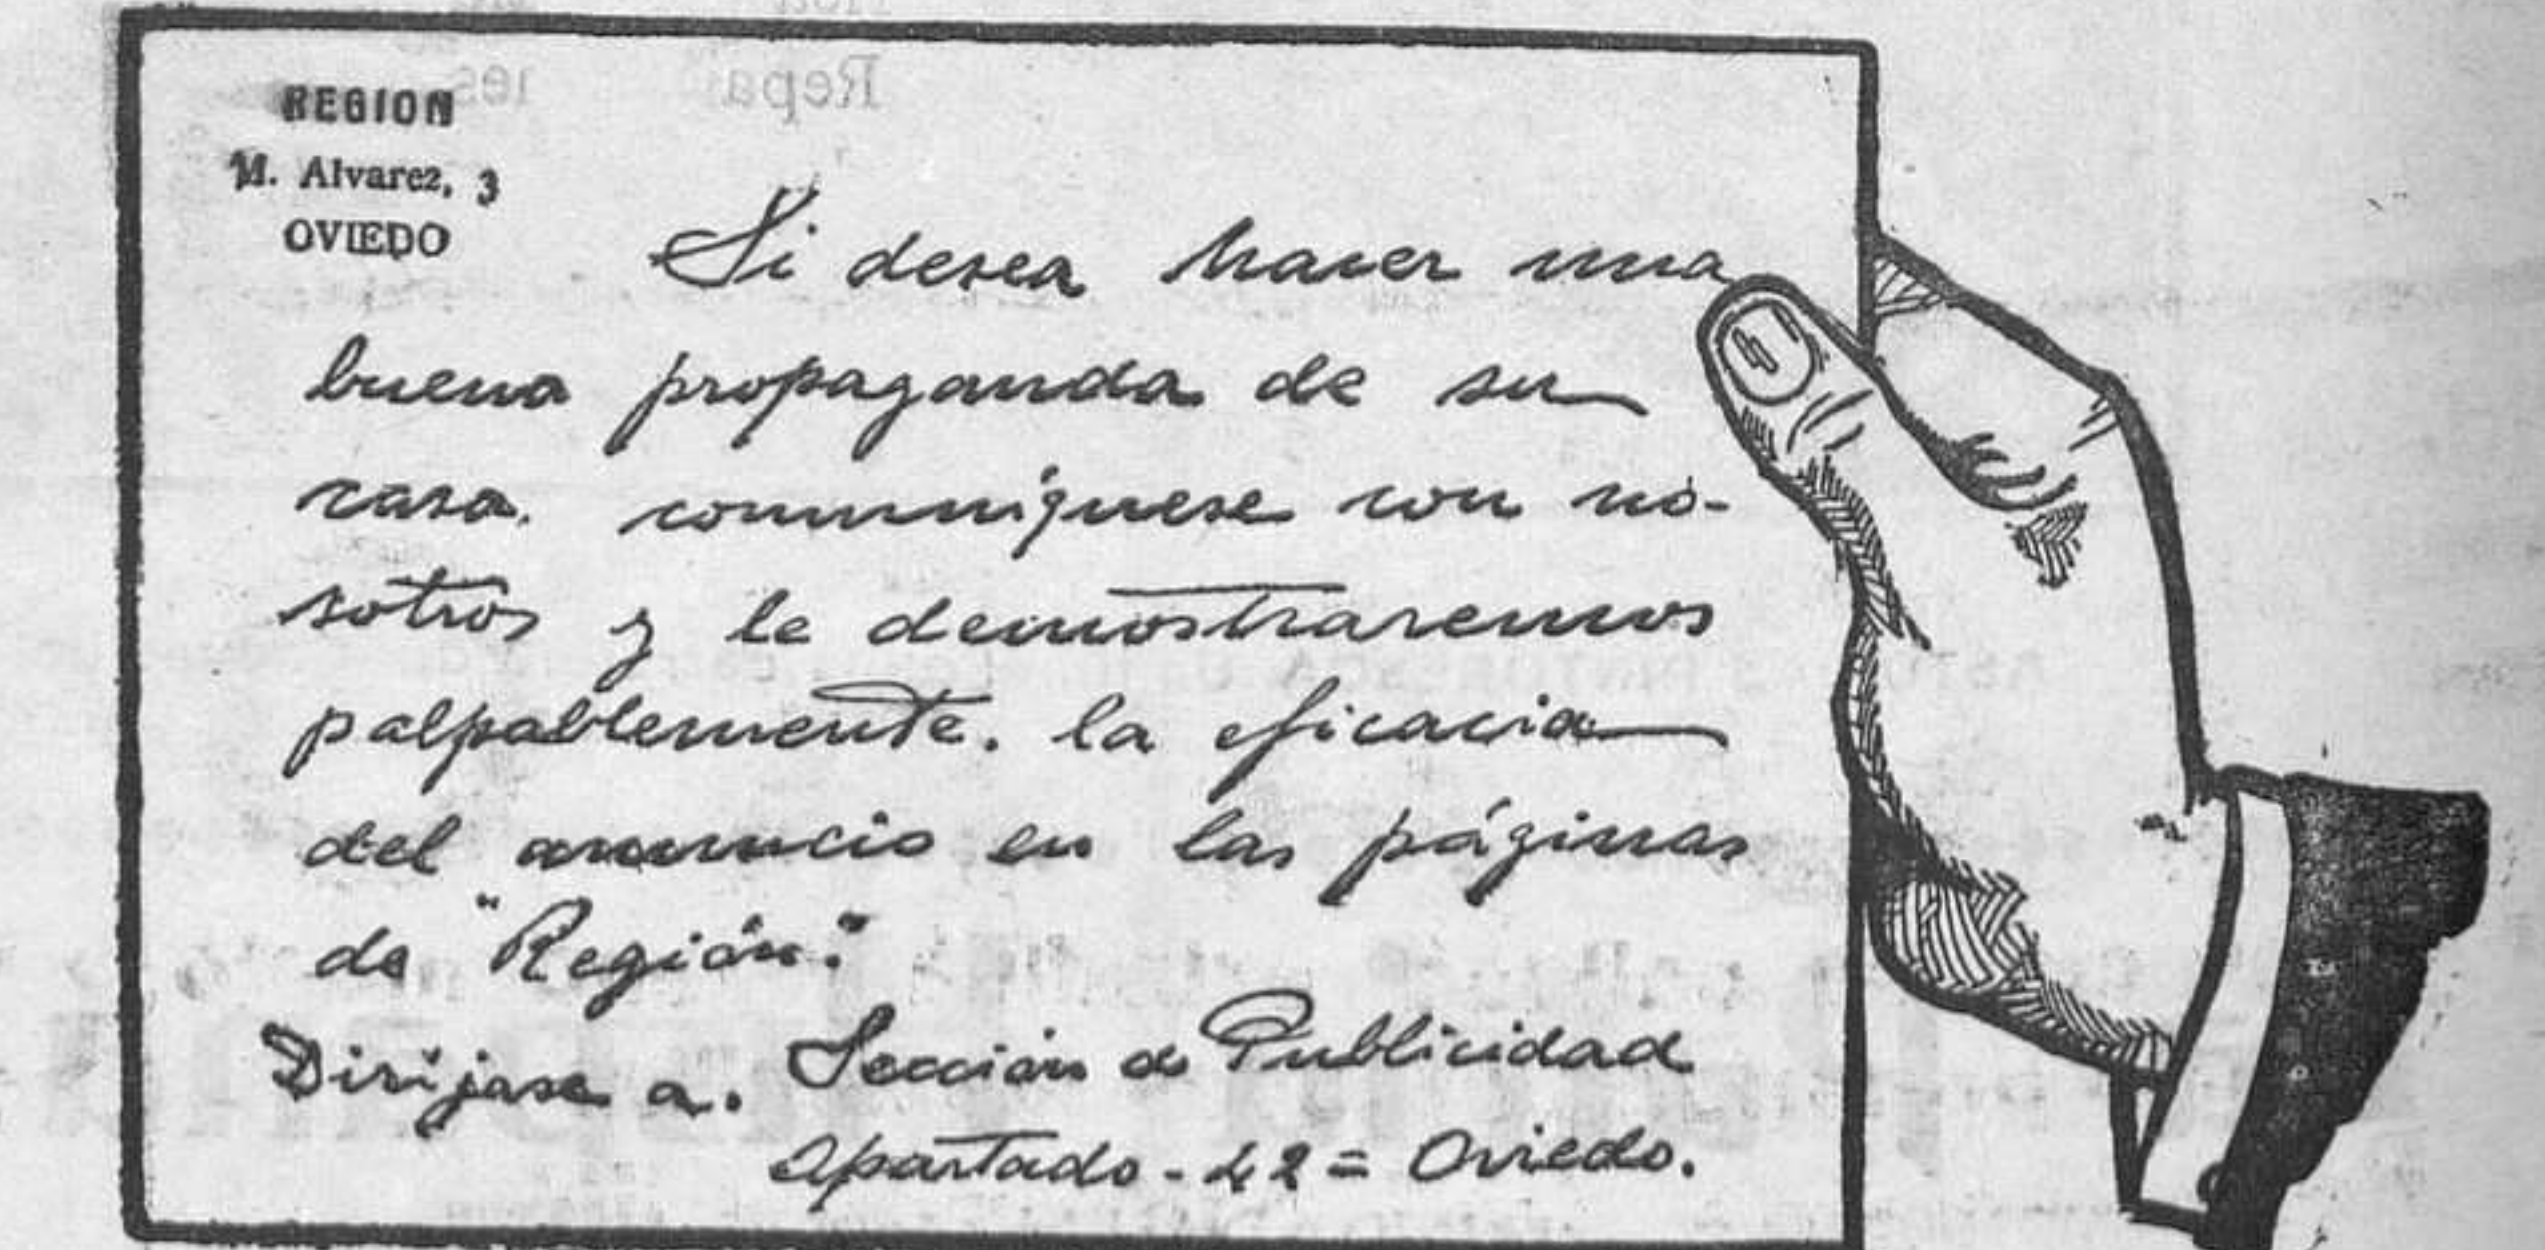 REGION
M. Alvarez, 3
OVIEDO
Si desea hacer una
buena propaganda de su
casa. comuníquese con no-
sotros y le demostraremos
palpablemente. la eficacia
del anuncio en las páginas
de "Región."
Diríjase a. Sección de Publicidad
Apartado - 42 = Oviedo.